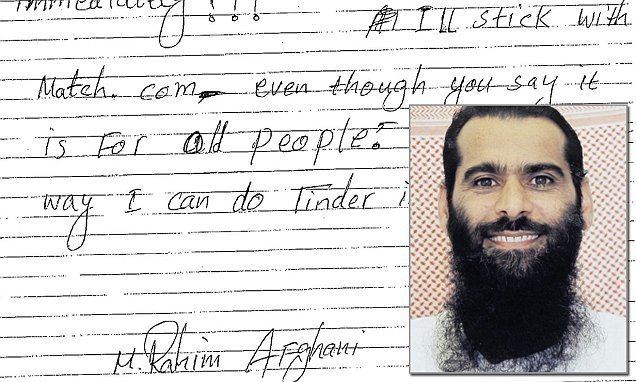 immediately !!!
I'll stick with
Match.com, even though you say it
is For old people!
way I can do Tinder
M. Rahim Afghani